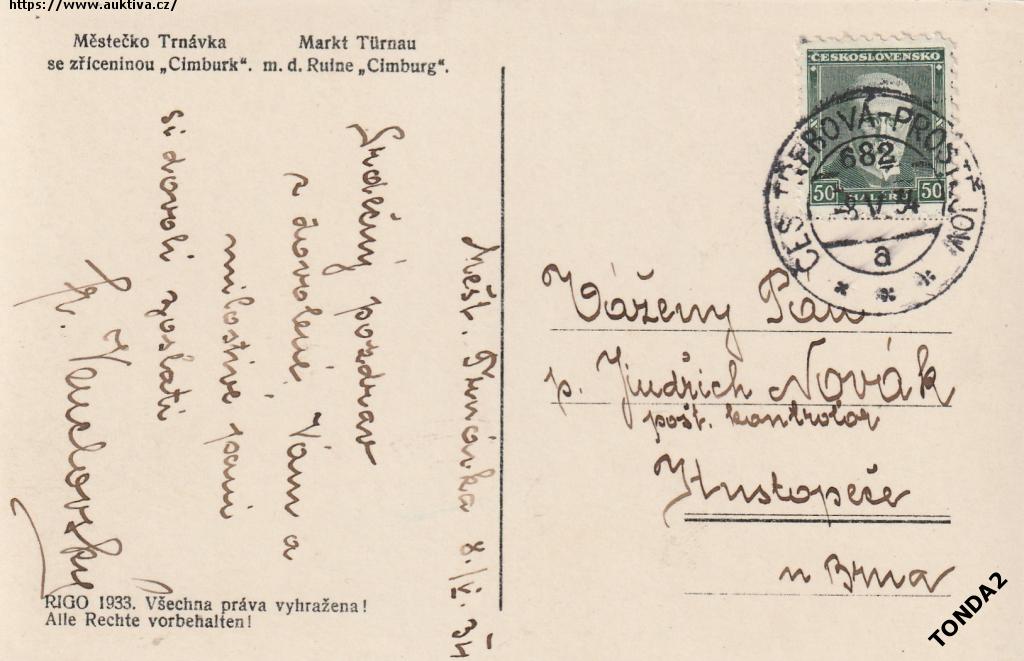 https://www.auktiva.cz/
Městečko Trnávka
se zříceninou „Cimburk“.
Markt Türnau
m. d. Ruine „Cimburg“.
ČESKOSLOVENSKO
50 HALÉŘŮ 50
ČES. TŘEBOVÁ-PROSTĚJOV
682
8 V 34
a
Měst. Trnávka 8./V. 34
Srdečný pozdrav
z dovolené Vám a
milostivé paní
si dovolí zaslati
Vážený Pan
p. Jindřich Novák
pošt. kontrolor
Hustopeče
u Brna
RIGO 1933. Všechna práva vyhražena!
Alle Rechte vorbehalten!
TONDA2